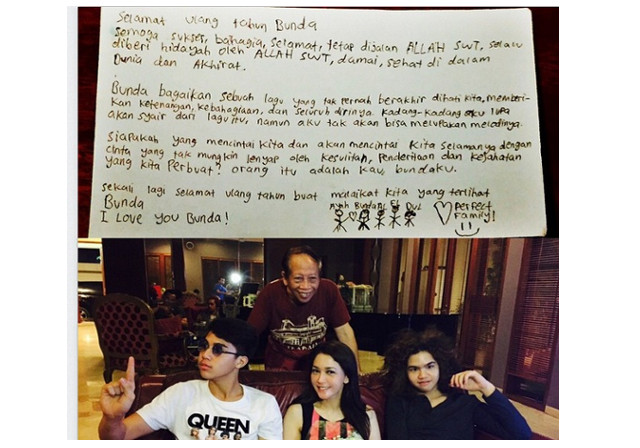 Selamat ulang tahun Bunda
Semoga sukses, bahagia, selamat, tetap dijalan ALLAH SWT, selalu
diberi hidayah oleh ALLAH SWT, damai, sehat di dalam
Dunia dan Akhirat.
Bunda bagaikan sebuah lagu yang tak pernah berakhir dihati kita, memberi-
kan ketenangan, kebahagiaan, dan seluruh dirinya. Kadang-kadang aku lupa
akan syair dari lagu itu, namun aku tak akan bisa melupakan melodinya.
Siapakah yang mencintai kita dan akan mencintai kita selamanya dengan
cinta yang tak mungkin lenyap oleh kesulitan, penderitaan dan kejahatan
yang kita perbuat? orang itu adalah kau, bundaku.
sekali lagi selamat ulang tahun buat malaikat kita yang terlihat
Bunda
I Love You Bunda!
Ayah Bunda Al El Dul
Perfect
Family!
QUEEN